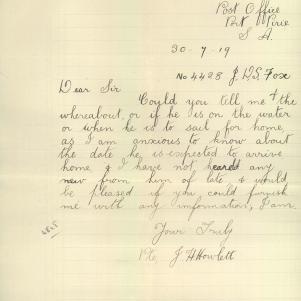 Post Office
Port Pirie
S A.
30-7-19
No 4428 J.H.S. Fox
Dear Sir
Could you tell me t the
whereabout, or if he is on the water
or when he is to sail for home,
as I am anxious to know about
the date he is expected to arrive
home & I have not heared any
new from him of late & would
be pleased if you could furnish
me with any information, I am.
Your Truly
J H Howlett